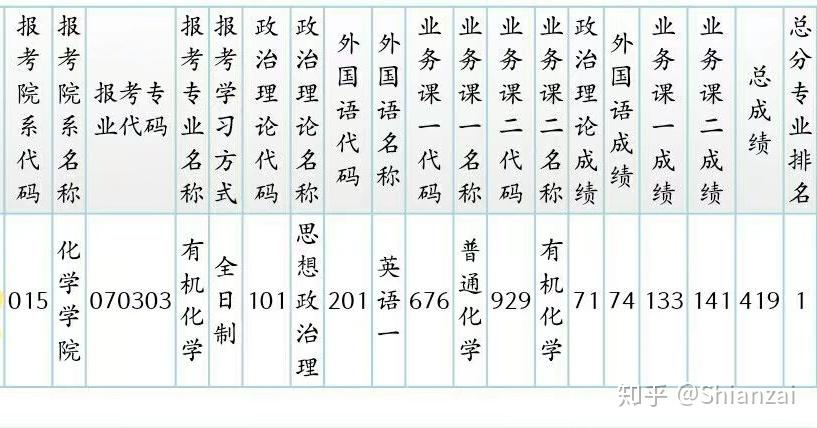 报考院系代码 报考院系名称 报考专业代码 报考专业名称 报考学习方式 政治理论代码 政治理论名称 外国语代码 外国语名称 业务课一代码 业务课一名称 业务课二代码 业务课二名称 政治理论成绩 外国语成绩 业务课一成绩 业务课二成绩 总成绩 总分专业排名
015 化学学院 070303 有机化学 全日制 101 思想政治理 201 英语一 676 普通化学 929 有机化学 71 74 133 141 419 1
知乎 @Shianzai